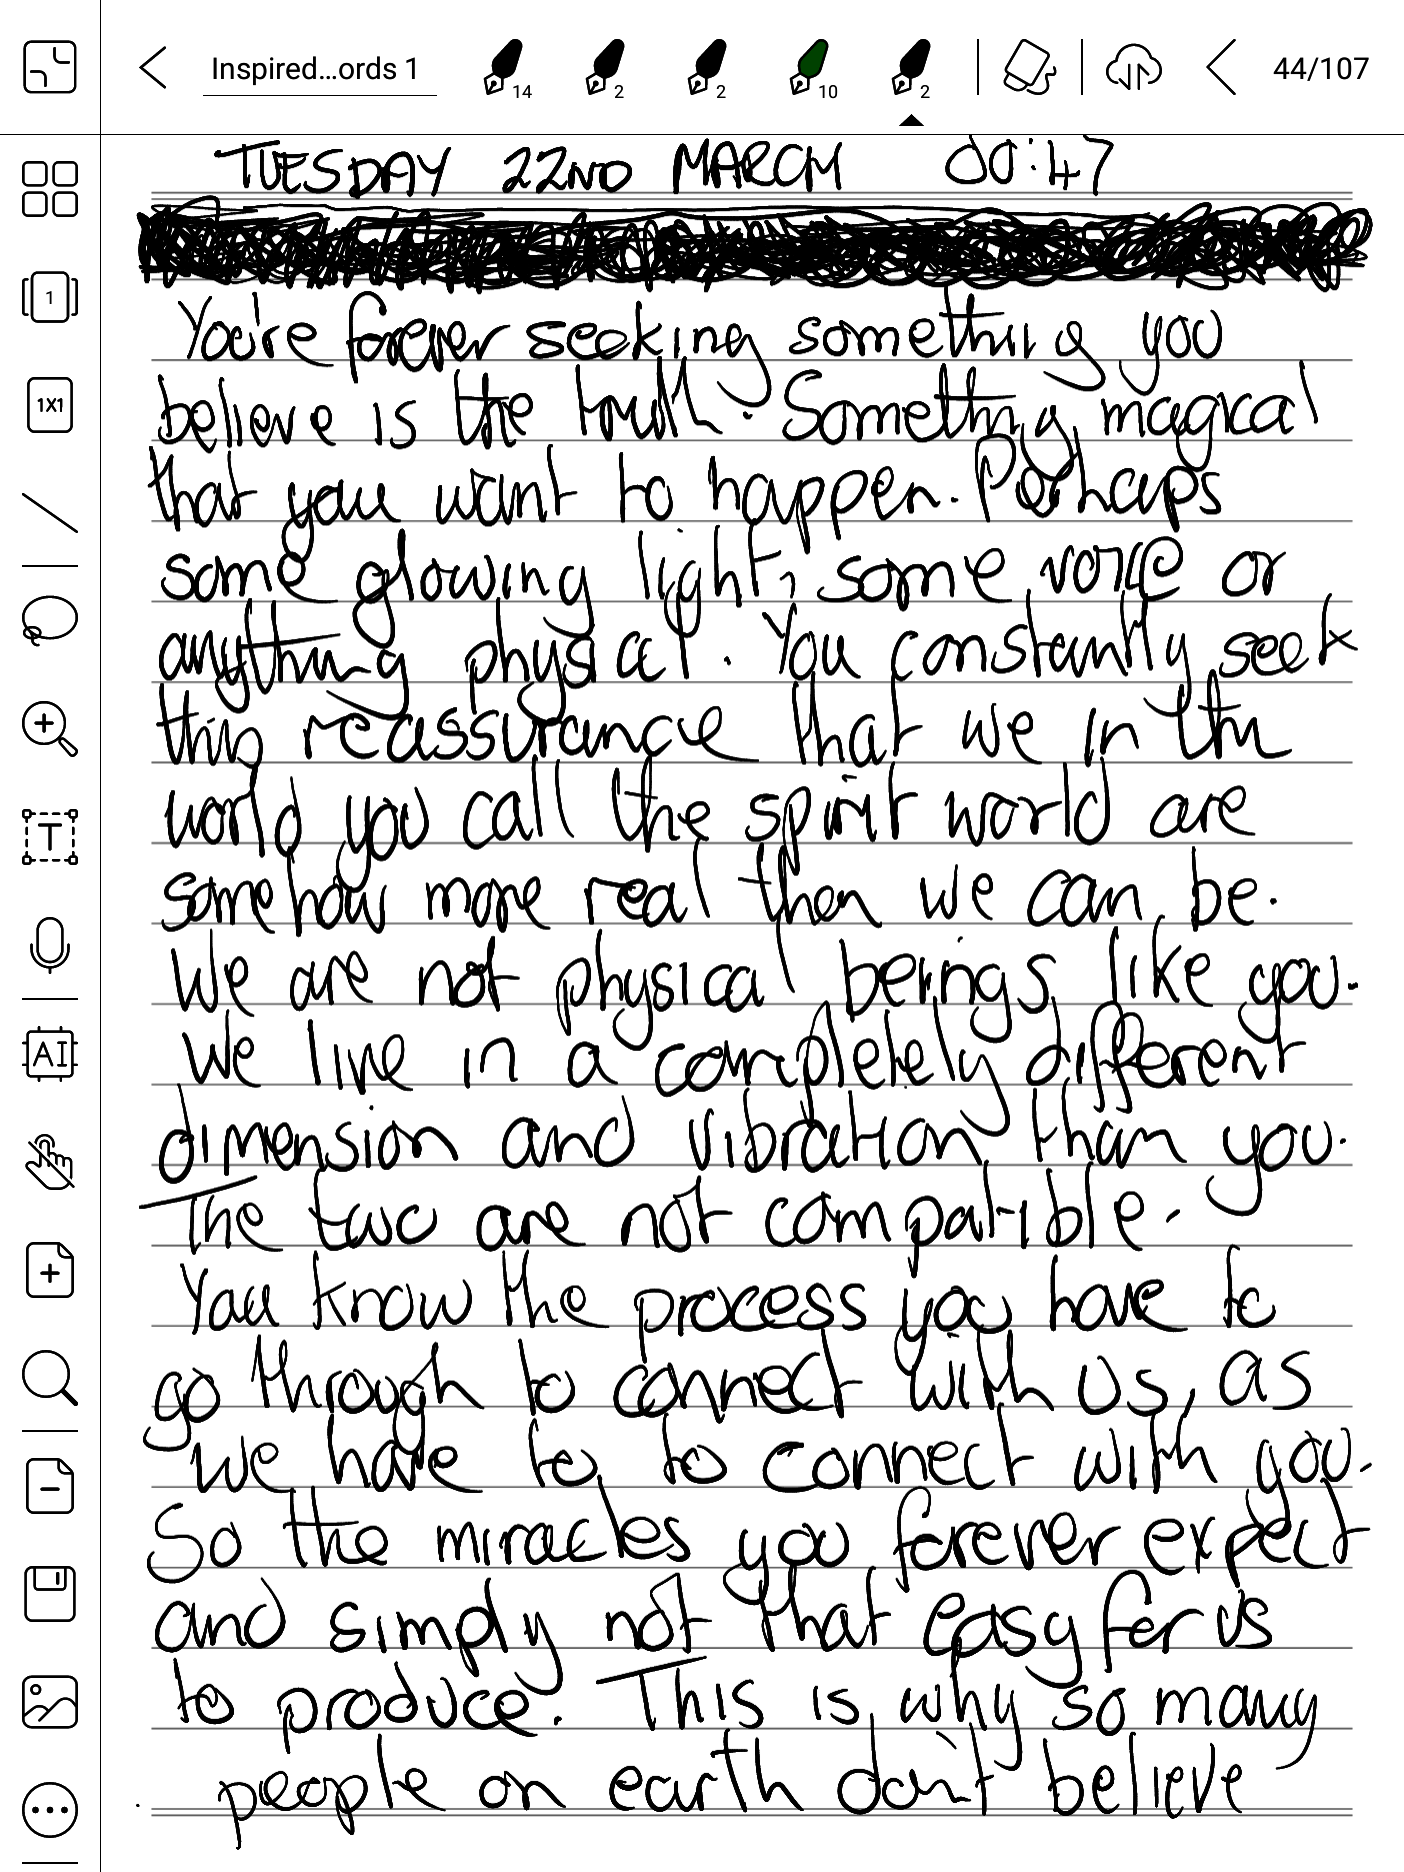 Inspired...ords 1
14
2
2
10
2
44/107
1
1X1
T
AI
TUESDAY 22ND MARCH 00:47
You're forever seeking something you
believe is the truth. Something magical
that you want to happen. Perhaps
some glowing light, some voice or
anything physical. You constantly seek
this reassurance that we in the
world you call the spirit world are
somehow more real then we can be.
We are not physical beings like you.
We live in a completely different
dimension and vibration than you.
The two are not compatible.
You know the process you have to
go through to connect with us, as
we have to, to connect with you.
So the miracles you forever expect
and simply not that easy for us
to produce. This is why so many
people on earth don't believe